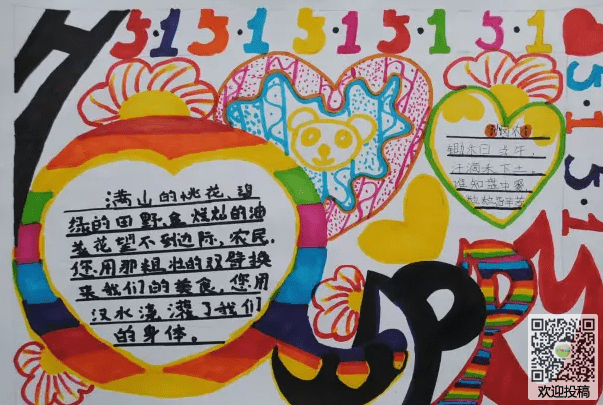 5·1 5·1 5·1 5·1 5·1
5·1 5·1
满山的桃花,碧
绿的田野,金灿灿的油
菜花望不到边际,农民,
您用那粗壮的双臂换
来我们的美食,您用
汉水浇灌了我们
的身体。
悯农
锄禾日当午,
汗滴禾下土,
谁知盘中餐,
粒粒皆辛苦
欢迎投稿